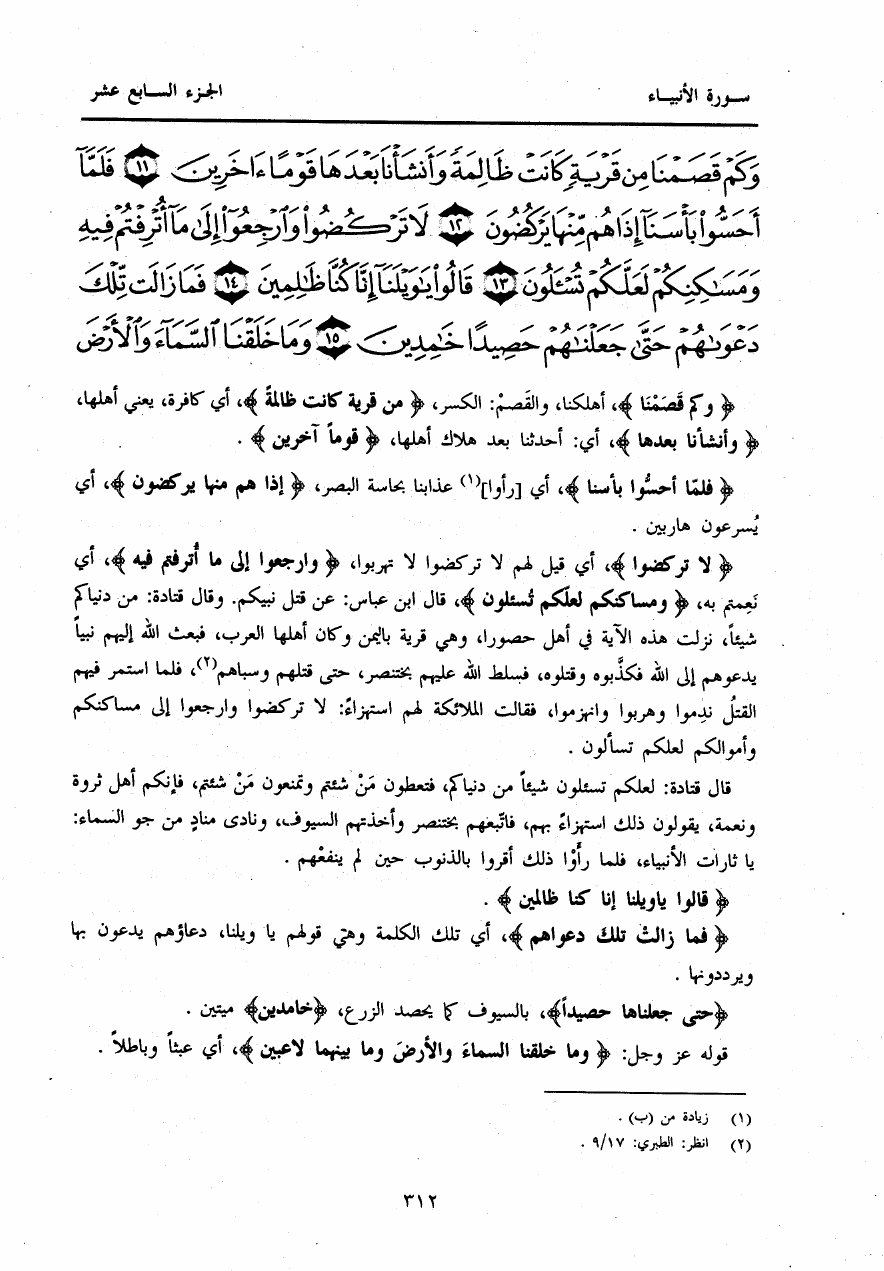 سورة الأنبياء
الجزء السابع عشر
وَكَمْ قَصَمْنَا مِن قَرْيَةٍ كَانَتْ ظَالِمَةً وَأَنشَأْنَا بَعْدَهَا قَوْمًا ءَاخَرِينَ ١١ فَلَمَّآ
أَحَسُّوا۟ بَأْسَنَآ إِذَا هُم مِّنْهَا يَرْكُضُونَ ١٢ لَا تَرْكُضُوا۟ وَٱرْجِعُوٓا۟ إِلَىٰ مَآ أُتْرِفْتُمْ فِيهِ
وَمَسَـٰكِنِكُمْ لَعَلَّكُمْ تُسْـَٔلُونَ ١٣ قَالُوا۟ يَـٰوَيْلَنَآ إِنَّا كُنَّا ظَـٰلِمِينَ ١٤ فَمَا زَالَت تِّلْكَ
دَعْوَىٰهُمْ حَتَّىٰ جَعَلْنَـٰهُمْ حَصِيدًا خَـٰمِدِينَ ١٥ وَمَا خَلَقْنَا ٱلسَّمَآءَ وَٱلْأَرْضَ
﴿ وكم قَصَمْنَا ﴾، أهلكنا، والقَصمْ: الكسر، ﴿ من قرية كانت ظالمةً ﴾، أي كافرة، يعني أهلها،
﴿ وأنشأنا بعدها ﴾، أي: أحدثنا بعد هلاك أهلها، ﴿ قوماً آخرين ﴾ .
﴿ فلمّا أحسُّوا بأسنا ﴾، أي [رأوا](١) عذابنا بحاسة البصر، ﴿ إذا هم منها يركضون ﴾، أي
يُسرعون هاربين .
﴿ لا تركضوا ﴾، أي قيل لهم لا تركضوا لا تهربوا، ﴿ وارجعوا إلى ما أُترفتم فيه ﴾، أي
نَعِمتم به، ﴿ ومساكنكم لعلّكم تُسئلون ﴾، قال ابن عباس: عن قتل نبيكم. وقال قتادة: من دنياكم
شيئاً، نزلت هذه الآية في أهل حصورا، وهي قرية باليمن وكان أهلها العرب، فبعث الله إليهم نبياً
يدعوهم إلى الله فكذَّبوه وقتلوه، فسلط الله عليهم بختنصر، حتى قتلهم وسباهم(٢)، فلما استمر فيهم
القتلُ ندِموا وهربوا وانهزموا، فقالت الملائكة لهم استهزاءً: لا تركضوا وارجعوا إلى مساكنكم
وأموالكم لعلكم تسألون .
قال قتادة: لعلكم تسئلون شيئاً من دنياكم، فتعطون مَنْ شئتم وتمنعون مَنْ شئتم، فإنكم أهل ثروة
ونعمة، يقولون ذلك استهزاءً بهم، فاتّبعهم بختنصر وأخذتهم السيوف، ونادى منادٍ من جو السماء:
يا ثارات الأنبياء، فلما رأَوْا ذلك أقروا بالذنوب حين لم ينفعْهم .
﴿ قالوا ياويلنا إنا كنا ظالمين ﴾ .
﴿ فما زالتْ تلك دعواهم ﴾، أي تلك الكلمة وهي قولهم يا ويلنا، دعاؤهم يدعون بها
ويرددونها .
﴿حتى جعلناها حصيداً﴾، بالسيوف كما يحصد الزرع، ﴿خامدين﴾ ميتين .
قوله عز وجل: ﴿ وما خلقنا السماءَ والأرضَ وما بينهما لاعبين ﴾، أي عبثاً وباطلاً .
(١) زيادة من (ب) .
(٢) انظر: الطبري: ٩/١٧ .
٣١٢